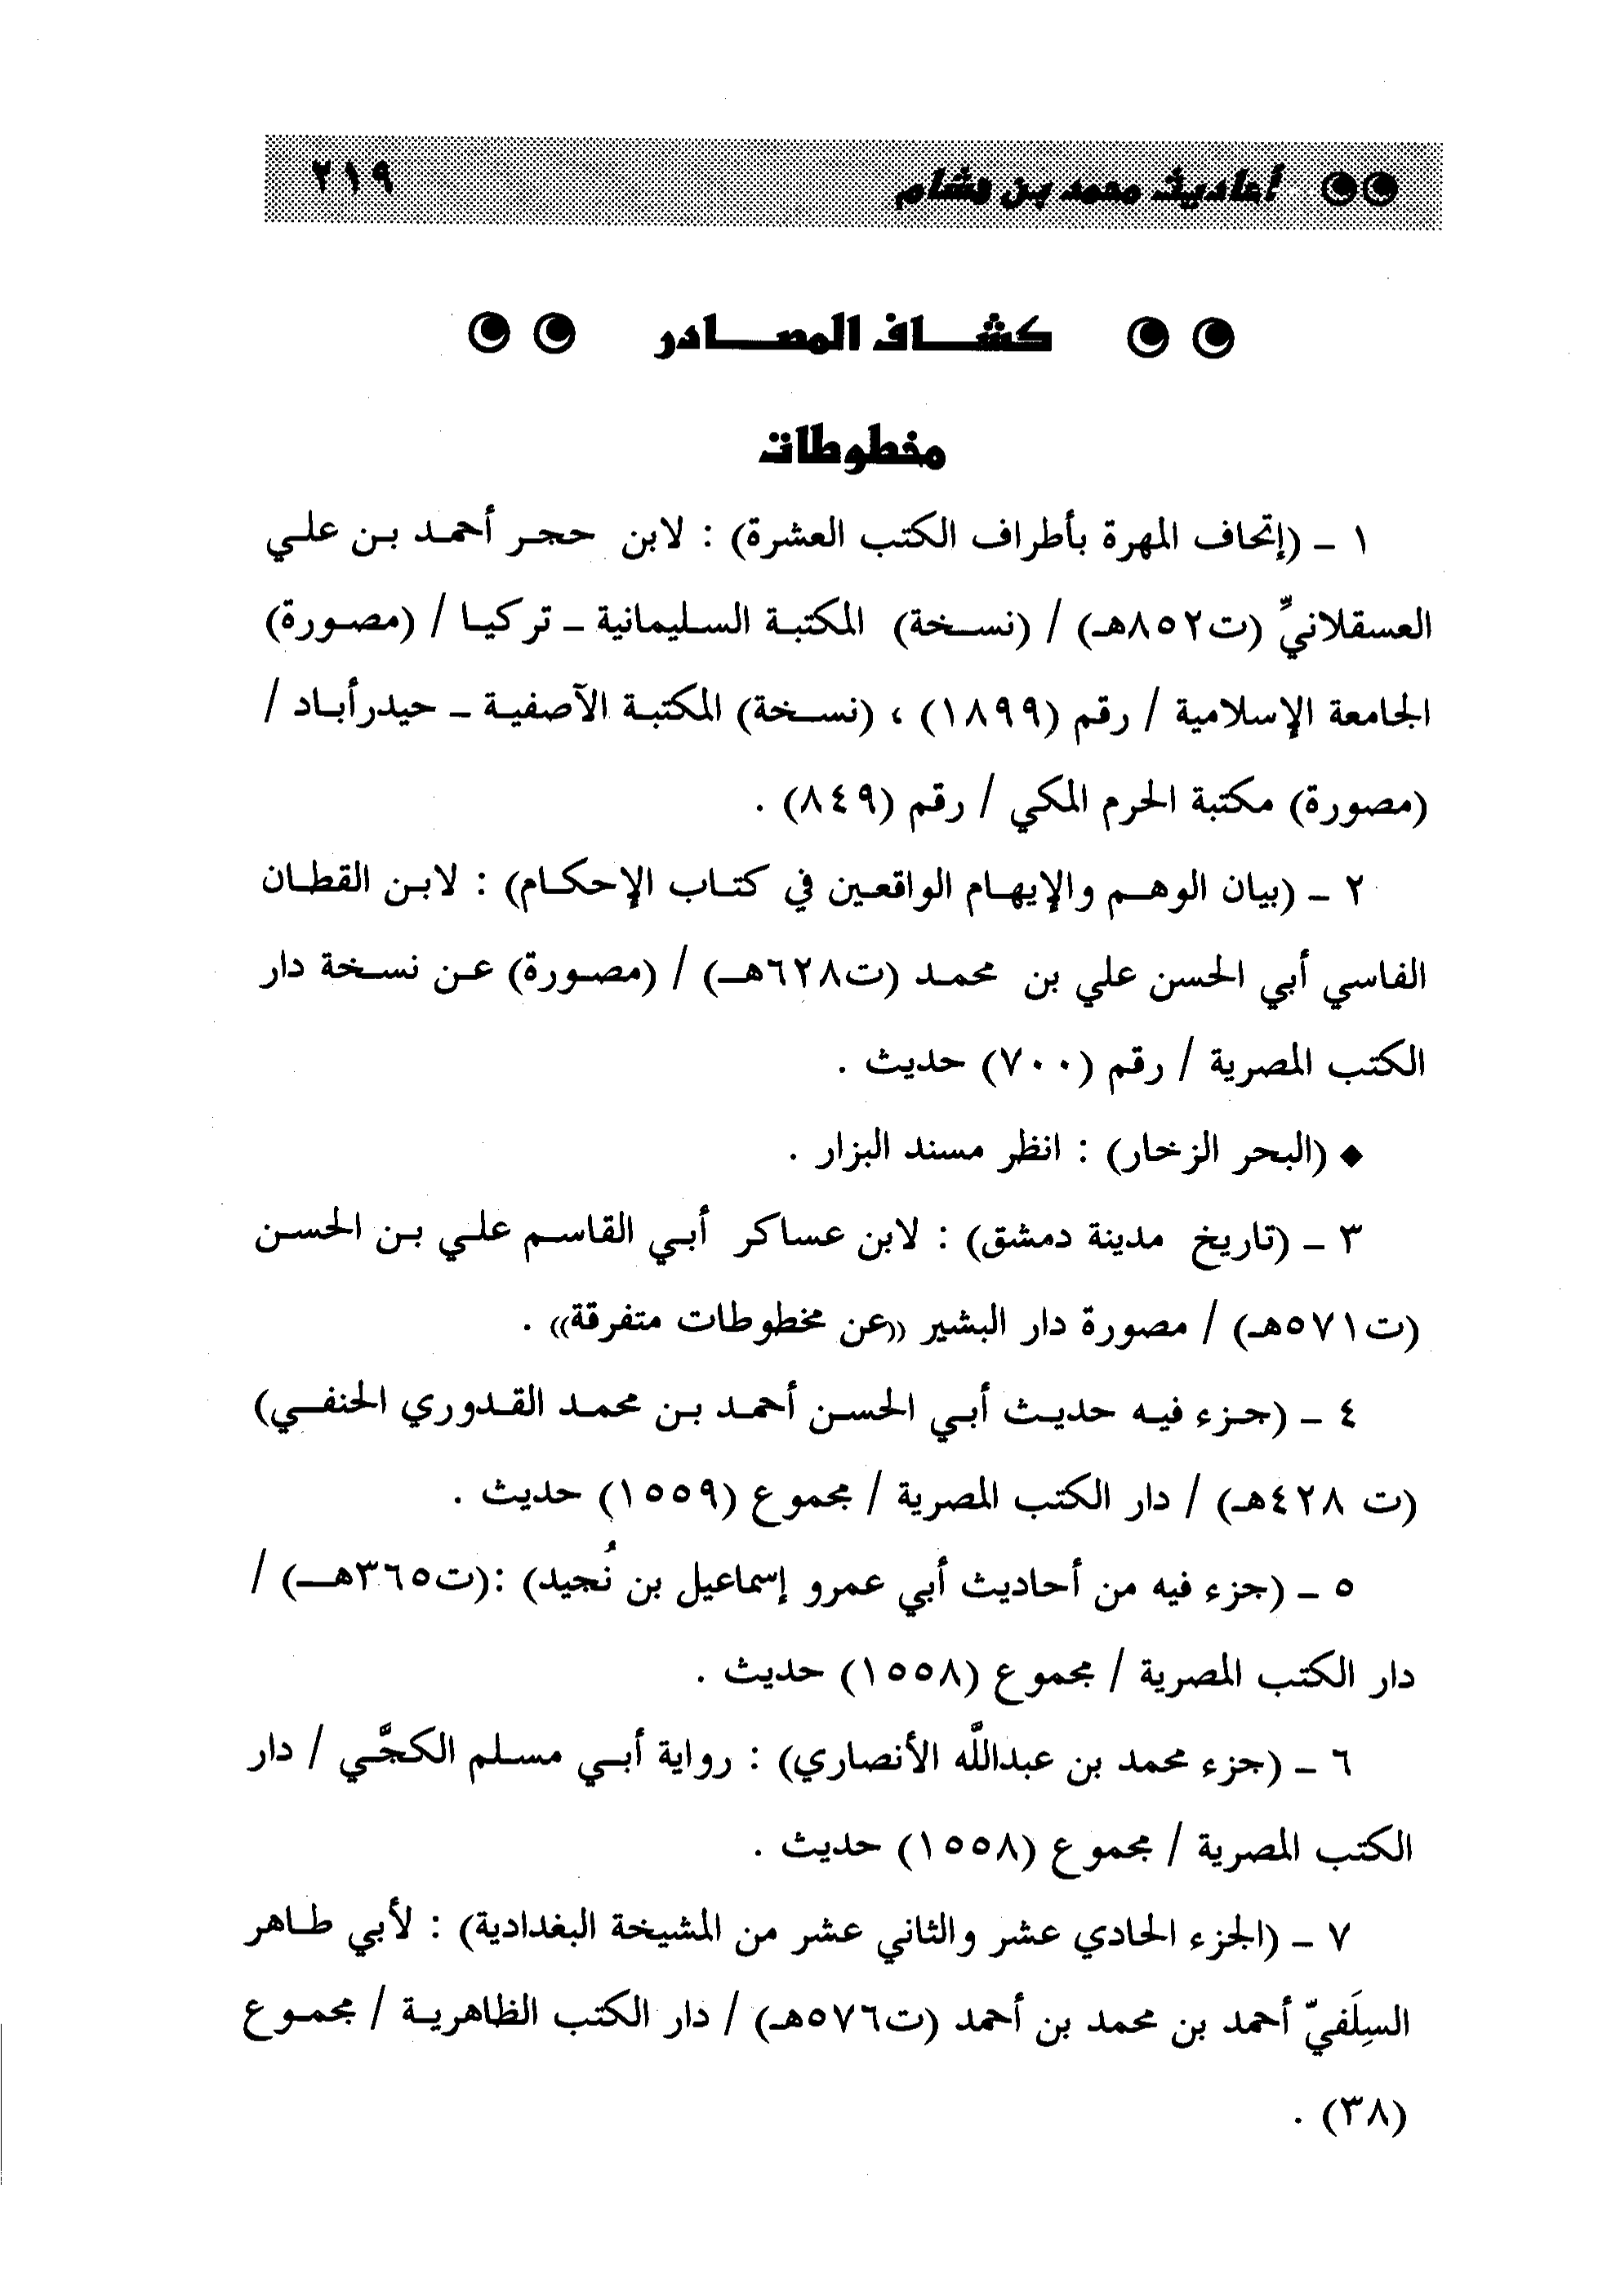 أحاديث محمد بن هشام ٢١٩
كشـــاف المصــادر
مخطوطات
١ - (إتحاف المهرة بأطراف الكتب العشرة) : لابن حجر أحمد بن علي
العسقلانيِّ (ت٨٥٢هـ) / (نسخة) المكتبة السليمانية - تركيا / (مصورة)
الجامعة الإسلامية / رقم (١٨٩٩) ، (نسخة) المكتبة الآصفية - حيدرأباد /
(مصورة) مكتبة الحرم المكي / رقم (٨٤٩) .
٢ - (بيان الوهم والإيهام الواقعين في كتاب الإحكام) : لابن القطان
الفاسي أبي الحسن علي بن محمد (ت٦٢٨هـ) / (مصورة) عن نسخة دار
الكتب المصرية / رقم (٧٠٠) حديث .
◆ (البحر الزخار) : انظر مسند البزار .
٣ - (تاريخ مدينة دمشق) : لابن عساكر أبي القاسم علي بن الحسن
(ت٥٧١هـ) / مصورة دار البشير ((عن مخطوطات متفرقة)) .
٤ - (جزء فيه حديث أبي الحسن أحمد بن محمد القدوري الحنفي)
(ت ٤٢٨هـ) / دار الكتب المصرية / مجموع (١٥٥٩) حديث .
٥ - (جزء فيه من أحاديث أبي عمرو إسماعيل بن نُجيد) :(ت٣٦٥هـ) /
دار الكتب المصرية / مجموع (١٥٥٨) حديث .
٦ - (جزء محمد بن عبداللَّه الأنصاري) : رواية أبي مسلم الكجَّي / دار
الكتب المصرية / مجموع (١٥٥٨) حديث .
٧ - (الجزء الحادي عشر والثاني عشر من المشيخة البغدادية) : لأبي طاهر
السِلَفيّ أحمد بن محمد بن أحمد (ت٥٧٦هـ) / دار الكتب الظاهرية / مجموع
(٣٨) .